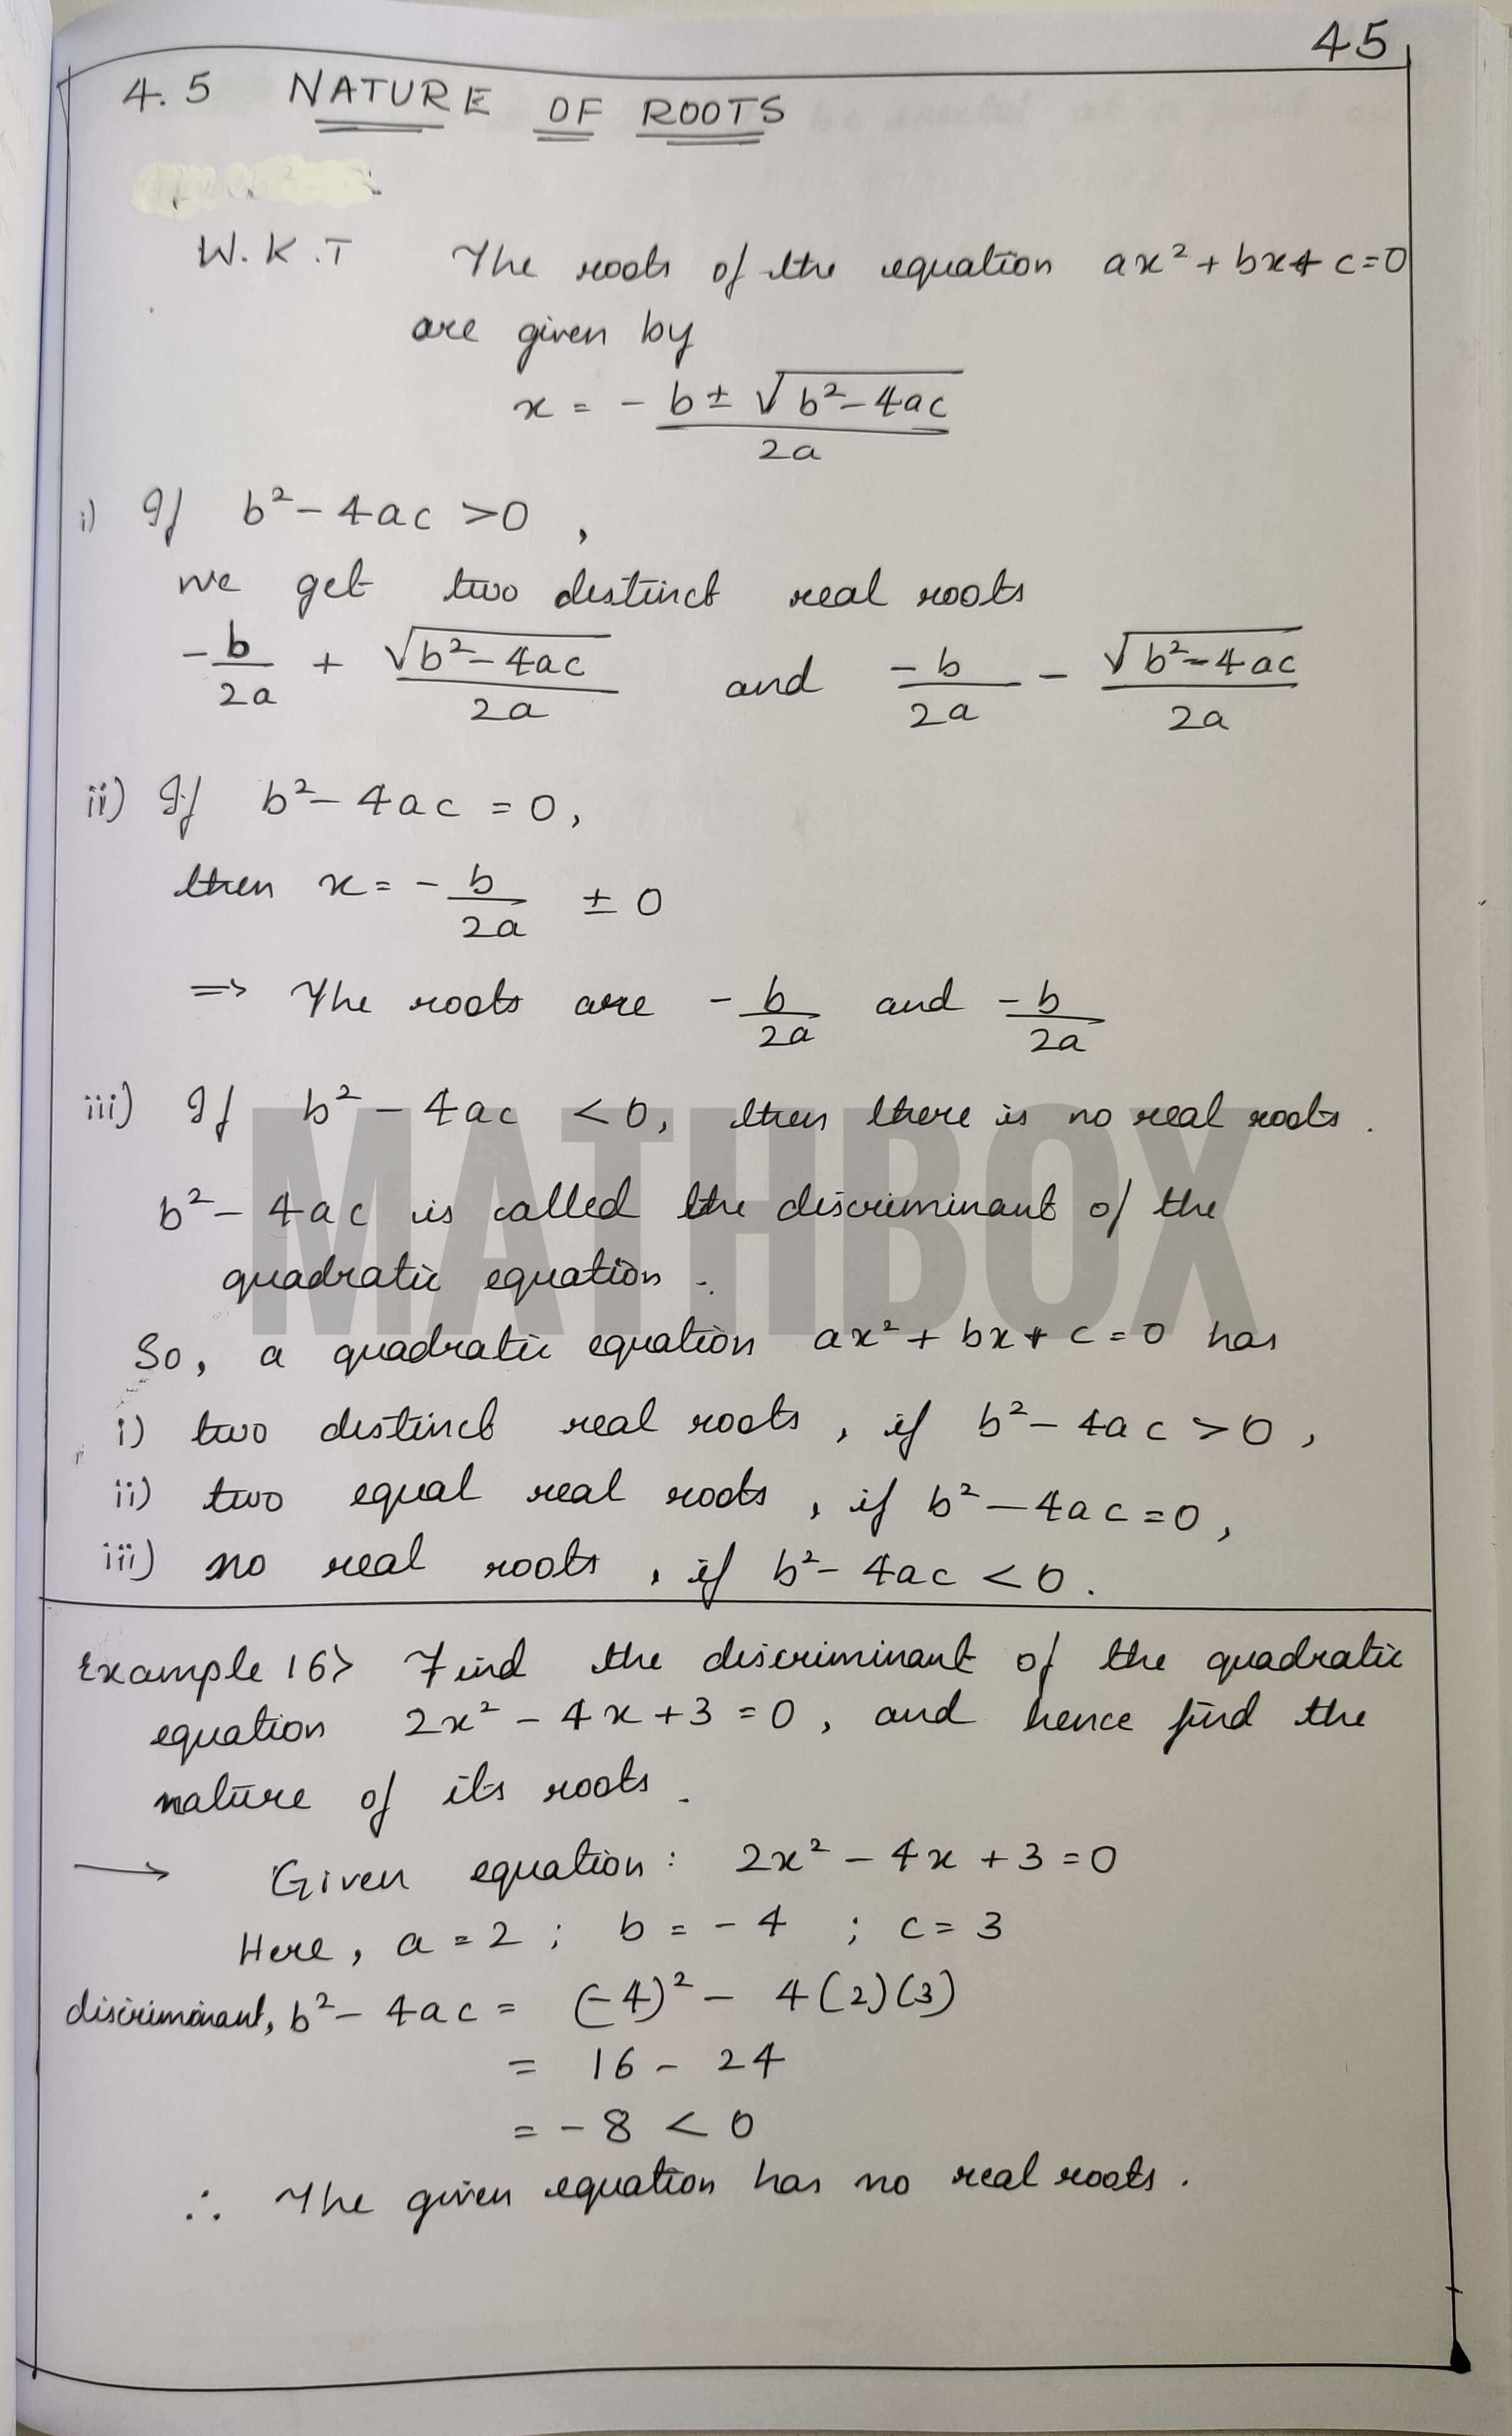 45
4.5 NATURE OF ROOTS
W.K.T The roots of the equation ax² + bx + c = 0
are given by
x = -b ± √(b² - 4ac) / 2a
i) If b² - 4ac > 0 ,
we get two distinct real roots
-b/2a + √(b² - 4ac)/2a and -b/2a - √(b² - 4ac)/2a
ii) If b² - 4ac = 0,
then x = -b/2a ± 0
⇒ The roots are -b/2a and -b/2a
iii) If b² - 4ac < 0, then there is no real roots.
MATHBOX
b² - 4ac is called the discriminant of the
quadratic equation.
So, a quadratic equation ax² + bx + c = 0 has
i) two distinct real roots, if b² - 4ac > 0,
ii) two equal real roots, if b² - 4ac = 0,
iii) no real roots, if b² - 4ac < 0.
Example 16> Find the discriminant of the quadratic
equation 2x² - 4x + 3 = 0, and hence find the
nature of its roots.
→ Given equation: 2x² - 4x + 3 = 0
Here, a = 2 ; b = -4 ; c = 3
discriminant, b² - 4ac = (-4)² - 4(2)(3)
= 16 - 24
= -8 < 0
∴ The given equation has no real roots.